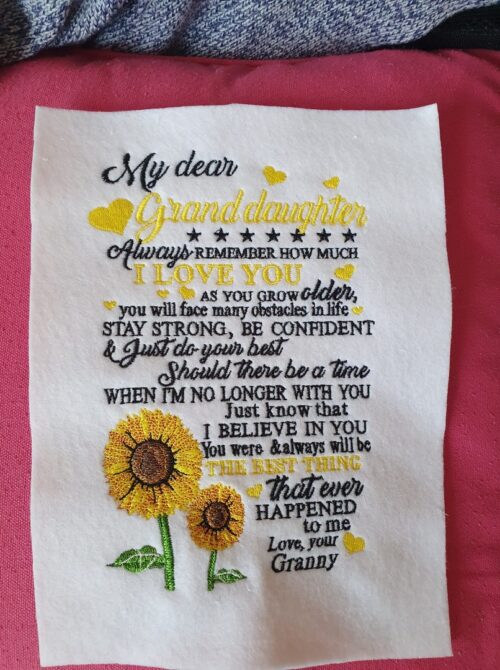 My dear
Grand daughter
Always REMEMBER HOW MUCH
I LOVE YOU
AS YOU GROW older,
you will face many obstacles in life
STAY STRONG, BE CONFIDENT
& Just do your best
Should there be a time
WHEN I'M NO LONGER WITH YOU
Just know that
I BELIEVE IN YOU
You were & always will be
THE BEST THING
that ever
HAPPENED
to me
Love, your
Granny